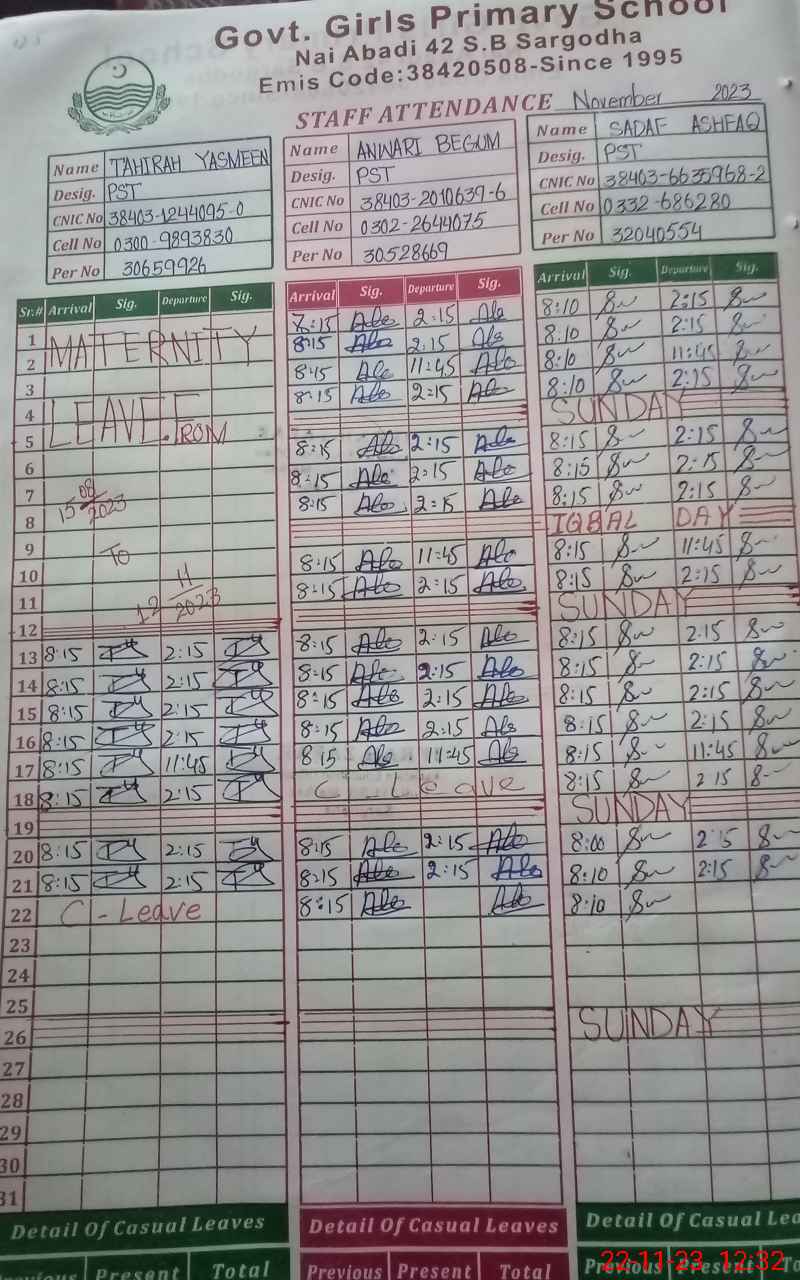 Govt. Girls Primary School
Nai Abadi 42 S.B Sargodha
Emis Code:38420508-Since 1995
STAFF ATTENDANCE November 2023
Name TAHIRAH YASMEEN
Desig. PST
CNIC No 38403-1244095-0
Cell No 0300-9893830
Per No 30659926
Name ANWARI BEGUM
Desig. PST
CNIC No 38403-2010639-6
Cell No 0302-2644075
Per No 30528669
Name SADAF ASHFAQ
Desig. PST
CNIC No 38403-6635968-2
Cell No 0332-686280
Per No 32040554
Sr.# Arrival Sig. Departure Sig. Arrival Sig. Departure Sig. Arrival Sig. Departure Sig.
1 MATERNITY 7:15 2:15 8:10 2:15
2 8:15 2:15 8:10 2:15
3 8:15 11:45 8:10 11:45
4 LEAVE. FROM 8:15 2:15 8:10 2:15
5 SUNDAY
6 8:15 2:15 8:15 2:15
7 15 08/2023 8:15 2:15 8:15 2:15
8 8:15 2:15 8:15 2:15
9 To IQBAL DAY
10 8:15 11:45 8:15 11:45
11 12 11/2023 8:15 2:15 8:15 2:15
12 SUNDAY
13 8:15 2:15 8:15 2:15 8:15 2:15
14 8:15 2:15 8:15 2:15 8:15 2:15
15 8:15 2:15 8:15 2:15 8:15 2:15
16 8:15 2:15 8:15 2:15 8:15 2:15
17 8:15 11:45 8:15 11:45 8:15 11:45
18 8:15 2:15 C Leave 8:15 2:15
19 SUNDAY
20 8:15 2:15 8:15 2:15 8:00 2:15
21 8:15 2:15 8:15 2:15 8:10 2:15
22 C - Leave 8:15 8:10
23
24
25
26 SUNDAY
27
28
29
30
31
Detail Of Casual Leaves Detail Of Casual Leaves Detail Of Casual Lea
Previous Present Total Previous Present Total Previous Present To
22-11-23 12:32